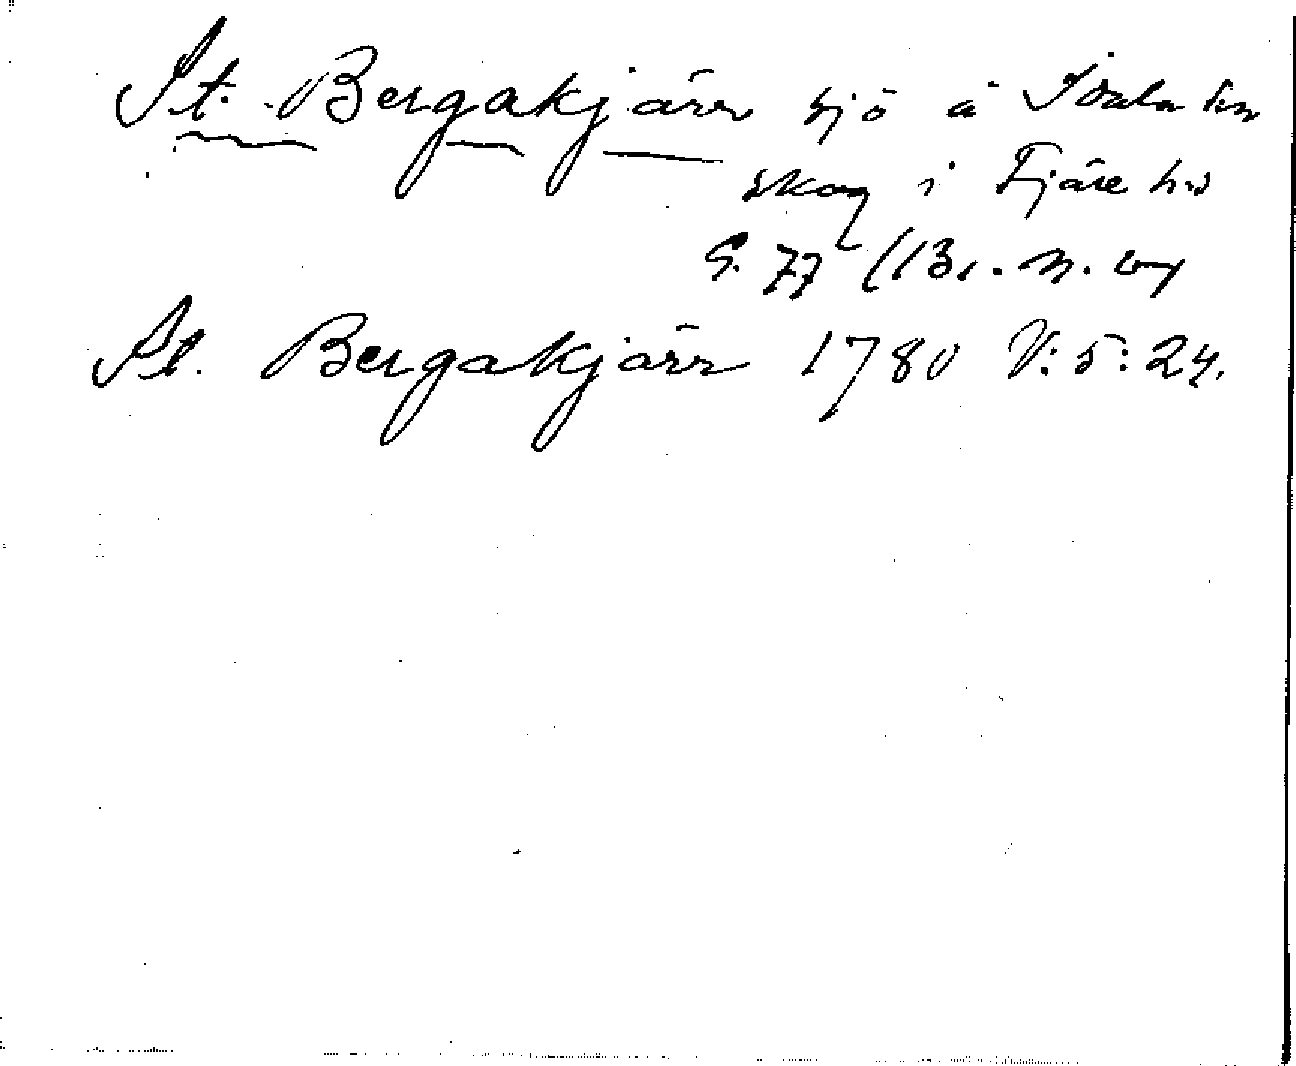 St. Bergakjärr sjö å Idala sn
skog i Fjäre hd
S. 77 (131. n. v)
St. Bergakjärr 1780 V: 5: 24.